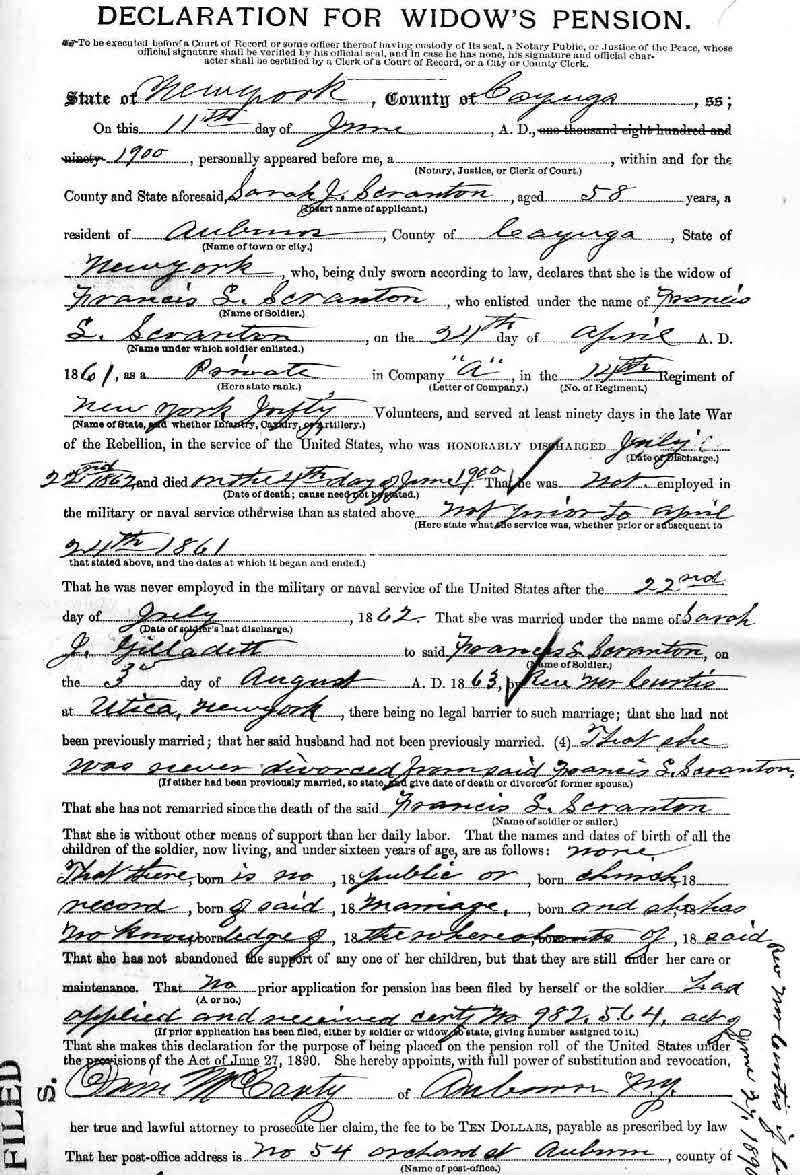 DECLARATION FOR WIDOW'S PENSION.
To be executed before a Court of Record or some officer thereof having custody of its seal, a Notary Public, or Justice of the Peace, whose
official signature shall be verified by his official seal, and in case he has none, his signature and official char-
acter shall be certified by a Clerk of a Court of Record, or a City or County Clerk.
State of New York, County of Cayuga, ss;
On this 11th day of June, A. D., one thousand eight hundred and
ninety 1900, personally appeared before me, a , within and for the
(Notary, Justice, or Clerk of Court.)
County and State aforesaid, Sarah J. Scranton, aged 58 years, a
(Insert name of applicant.)
resident of Auburn, County of Cayuga, State of
(Name of town or city.)
New York, who, being duly sworn according to law, declares that she is the widow of
Francis L. Scranton, who enlisted under the name of Francis
(Name of Soldier.)
L. Scranton, on the 24th day of April A. D.
(Name under which soldier enlisted.)
1861, as a Private in Company "A", in the 14th Regiment of
(Here state rank.) (Letter of Company.) (No. of Regiment.)
New York Infty Volunteers, and served at least ninety days in the late War
(Name of State, and whether Infantry, Cavalry, or Artillery.)
of the Rebellion, in the service of the United States, who was HONORABLY DISCHARGED July
(Date of Discharge.)
22nd 1862, and died on the 4th day of June 1900 That he was Not employed in
(Date of death; cause need not be stated.)
the military or naval service otherwise than as stated above Not prior to April
(Here state what the service was, whether prior or subsequent to
24th 1861
that stated above, and the dates at which it began and ended.)
That he was never employed in the military or naval service of the United States after the 22nd
day of July, 1862. That she was married under the name of Sarah
(Date of soldier's last discharge.)
J. to said Francis L. Scranton, on
(Name of Soldier.)
the 3d day of August A. D. 1863, by Rev Mr Curtis
at Utica, New York, there being no legal barrier to such marriage; that she had not
been previously married; that her said husband had not been previously married. (4) That she
was never divorced from said Francis L. Scranton,
(If either had been previously married, so state, and give date of death or divorce of former spouse.)
That she has not remarried since the death of the said Francis L. Scranton
(Name of soldier or sailor.)
That she is without other means of support than her daily labor. That the names and dates of birth of all the
children of the soldier, now living, and under sixteen years of age, are as follows: none.
That there, born is no, 18 public or, born church, 18
record, born of said, 18 marriage, born and she has
no know, born ledge of, 18 the whereabouts of, 18 said
That she has not abandoned the support of any one of her children, but that they are still under her care or
maintenance. That No prior application for pension has been filed by herself or the soldier had
(A or no.)
applied and received certf No 982,564, act of
(If prior application has been filed, either by soldier or widow, so state, giving number assigned to it.)
June 27, 1890
Rev Mr Curtis
That she makes this declaration for the purpose of being placed on the pension roll of the United States under
the provisions of the Act of June 27, 1890. She hereby appoints, with full power of substitution and revocation,
McCarty of Auburn N.Y.
her true and lawful attorney to prosecute her claim, the fee to be TEN DOLLARS, payable as prescribed by law
That her post-office address is No 54 Orchard st Auburn, county of
(Name of post-office.)
FILED
S.